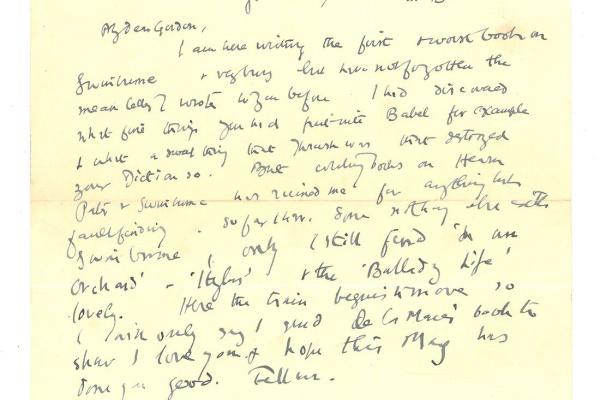 My dear Gordon,
I am here writing the first & worst book on
Swinburne & very busy but have not forgotten the
mean letter I wrote to you before I had discovered
what fine things you had put into Babel for example
& what a small thing that Thrush was that
your Diction so. But writing books on Hearn
Pater & Swinburne has ruined me for anything but
faultfinding. So far I have done nothing else with
Swinburne, only I still find 'In an
Orchard' & 'Itylus' & the 'Ballad of Life'
lovely. Here the train begins to move so
I will only say I send De la Mare's book to
show I love you & hope this May has
done you good. Tell me.